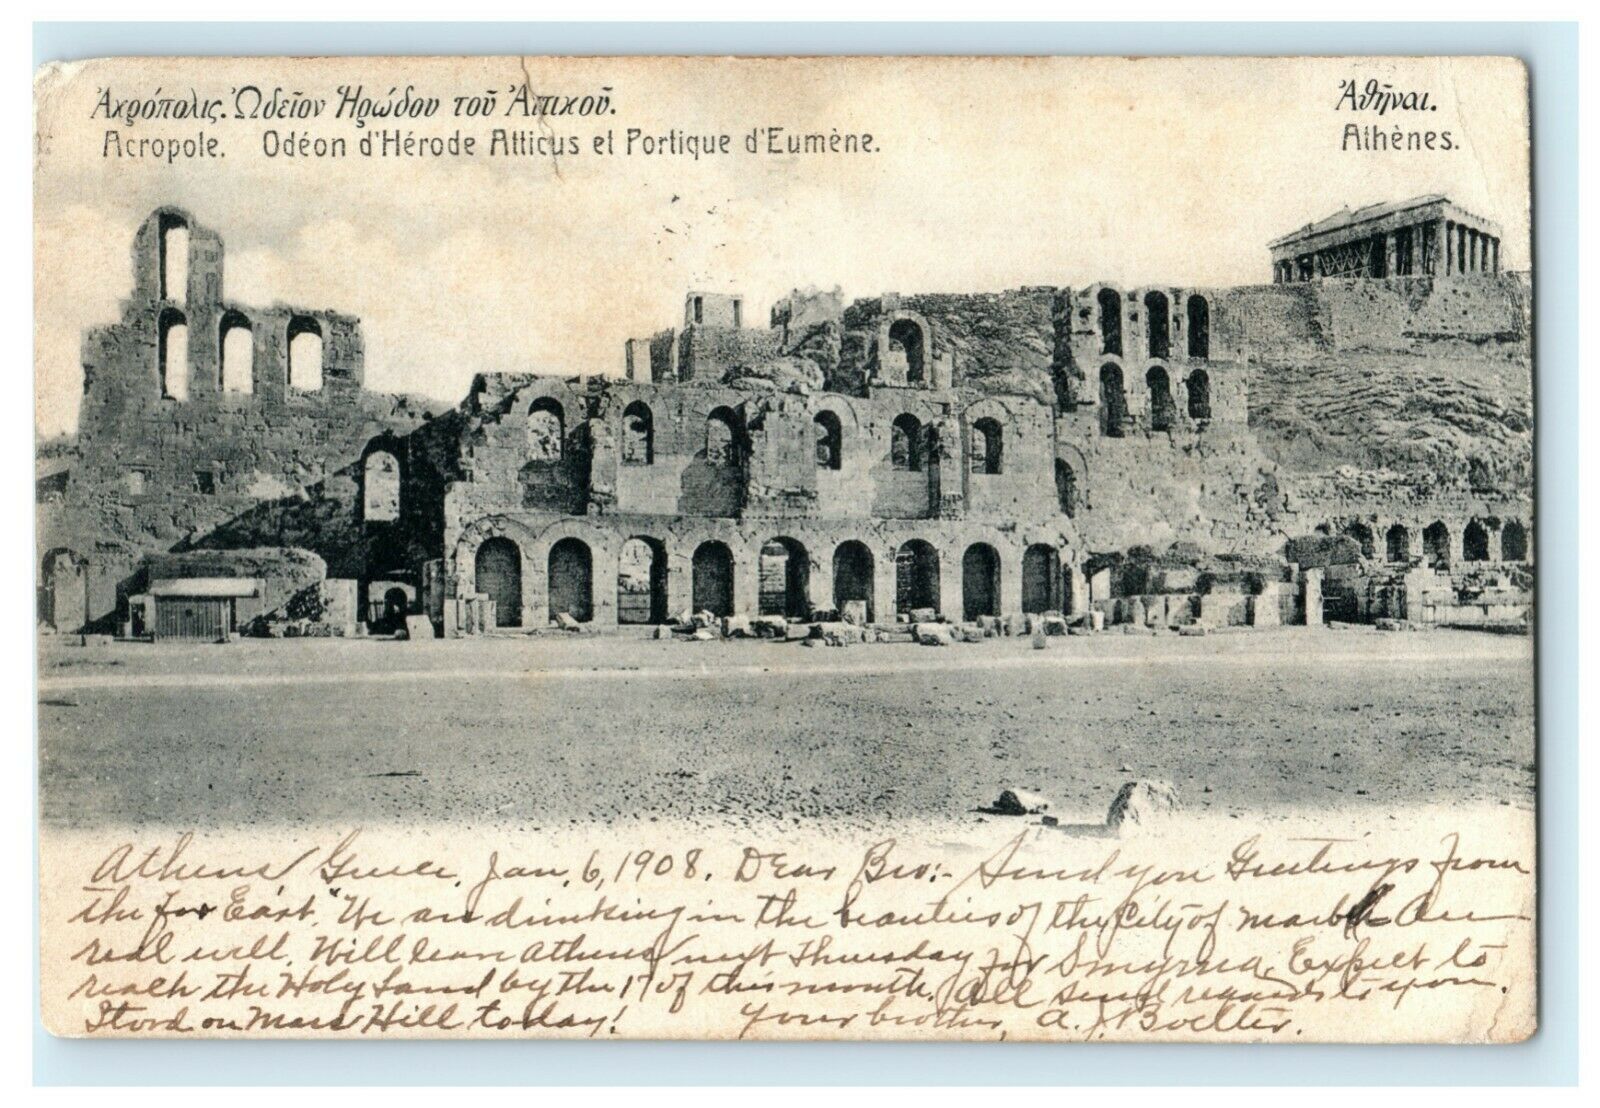 Ἀκρόπολις. Ὠδεῖον Ἡρώδου τοῦ Ἀττικοῦ.
Acropole. Odéon d'Hérode Atticus et Portique d'Eumène.
Ἀθῆναι.
Athènes.
Athens Greece, Jan. 6, 1908. Dear Bro:- Send you Greetings from
the far East." We are drinking in the beauties of the City of marble. Am
real well. Will leave Athens next Thursday for Smyrna. Expect to
reach the Holy Land by the 17 of this month. All send regards to you.
Stood on Mars Hill today! Your brother, A. J. Boelter.